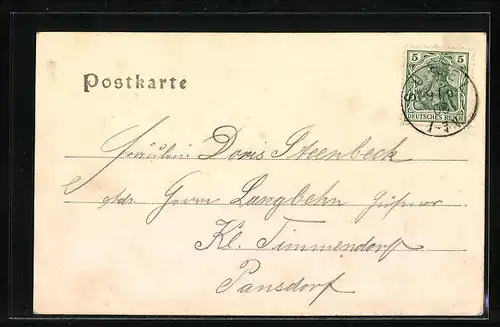 Postkarte
5 5
DEUTSCHES REICH
Fräulein Doris Steenbeck
Adr. Herrn Langbehn
Kl. Timmendorf
Pansdorf